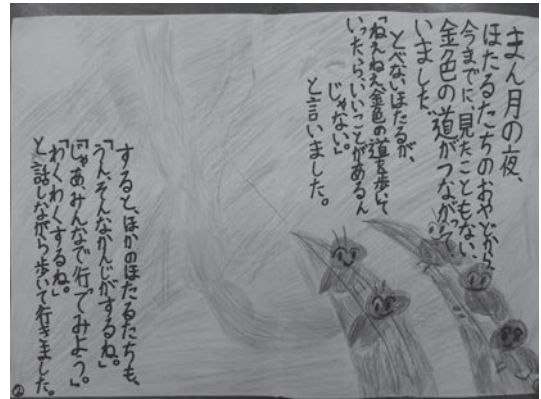 まん月の夜、
ほたるたちのおやどから、
今までに、見たこともない、
金色の道がつながって
いました。
とべないほたるが、
「ねえねえ、金色の道を歩いて
いったら、いいことがあるん
じゃない。」
と言いました。
すると、ほかのほたるたちも、
「うん、そんなかんじがするね。」
「じゃあみんなで行てみよう。」
「わくわくするね。」
と話しながら歩いて行きました。